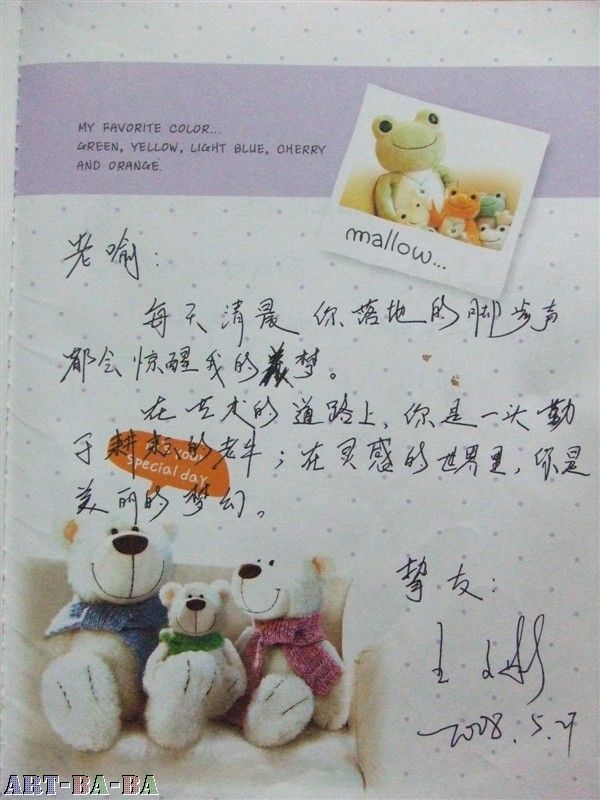 MY FAVORITE COLOR...
GREEN, YELLOW, LIGHT BLUE, CHERRY
AND ORANGE.
mallow...
老喻：
每天清晨 你落地的脚步声
都会惊醒我的美梦。
在艺术的道路上，你是一头勤
于耕耘的老牛；在灵感的世界里，你是
美丽的梦幻。
special day
挚友：
王
2008.5.27
ART-BA-BA